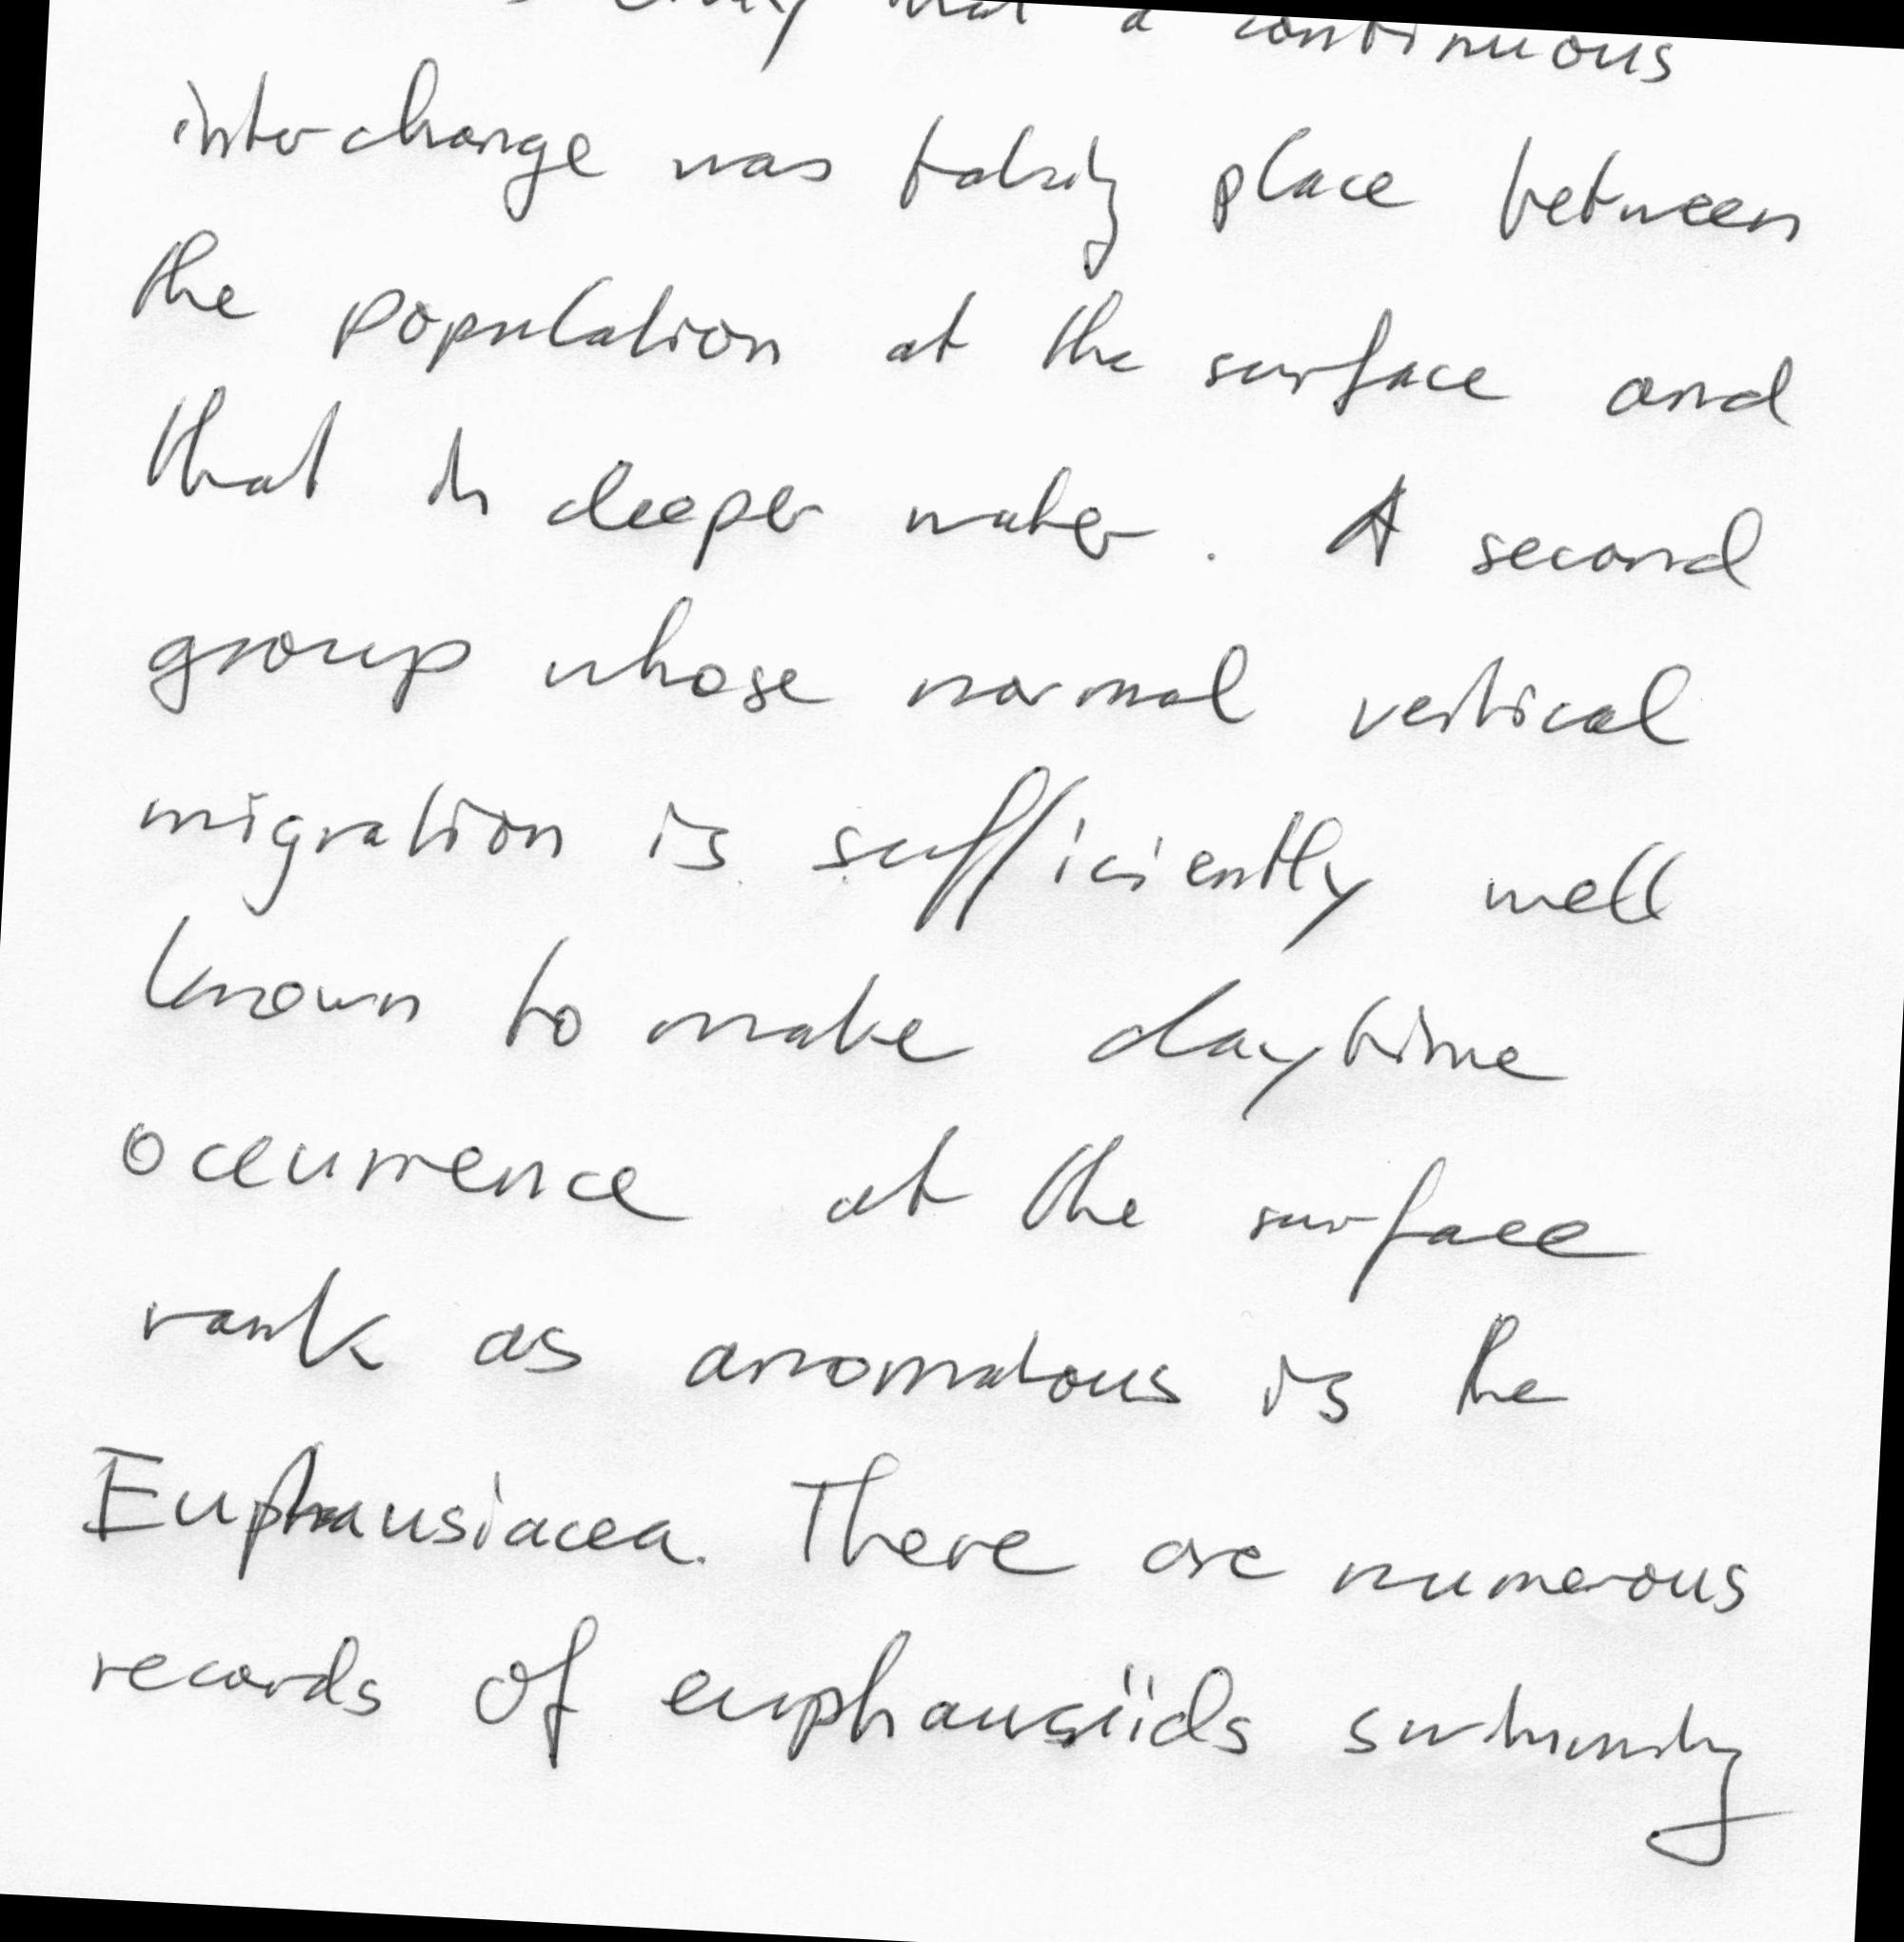 that a continuous
interchange was taking place between
the population at the surface and
that in deeper water. A second
group whose normal vertical
migration is sufficiently well
known to make daytime
occurrence at the surface
rank as anomalous is the
Euphausiacea. There are numerous
records of euphausiids swimming